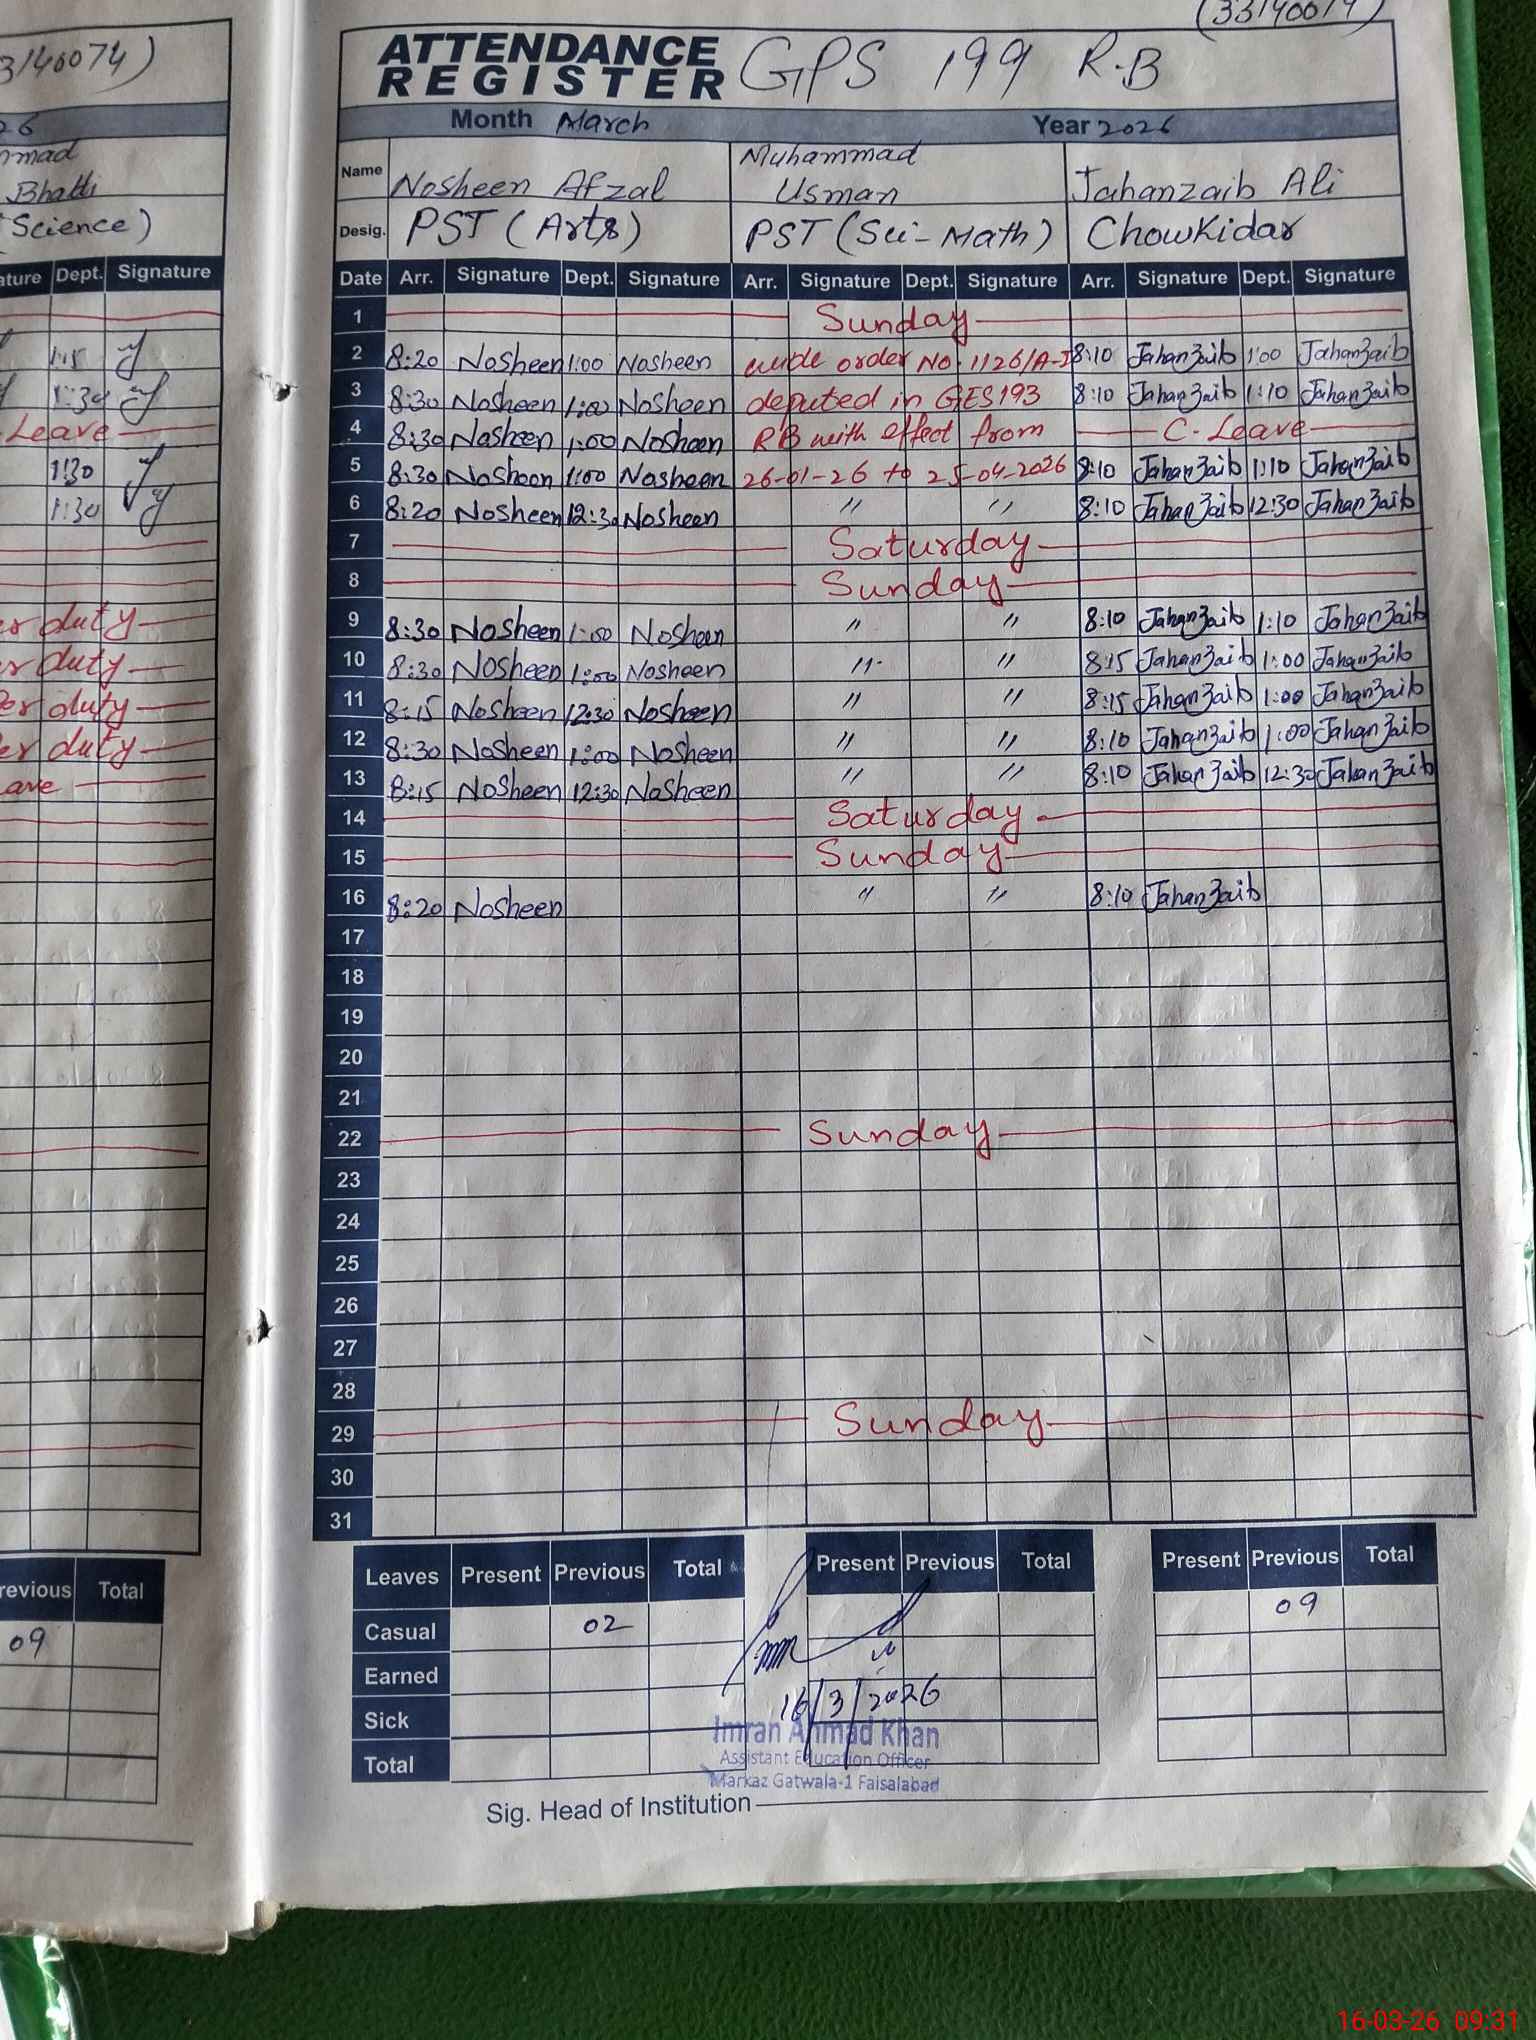 (33140074)
3140074)
26
mmad
Bhatti
(Science)
ature Dept. Signature
1:15
1:30
Leave
1:30
1:30
er duty
er duty
Per duty
er duty
eave
revious Total
09
ATTENDANCE REGISTER GPS 199 R.B
Month March Year 2026
Name Nosheen Afzal Muhammad Usman Jahanzaib Ali
Desig. PST (Arts) PST (Sci-Math) Chowkidar
Date Arr. Signature Dept. Signature Arr. Signature Dept. Signature Arr. Signature Dept. Signature
1 Sunday
2 8:20 Nosheen 1:00 Nosheen order No. 1126/A-I 8:10 Jahanzaib 1:00 Jahanzaib
3 8:30 Nosheen 1:00 Nosheen deputed in GES 193 8:10 Jahanzaib 1:10 Jahanzaib
4 8:30 Nosheen 1:00 Nosheen RB with effect from C-Leave
5 8:30 Nosheen 1:00 Nosheen 26-01-26 to 25-04-2026 8:10 Jahanzaib 1:10 Jahanzaib
6 8:20 Nosheen 12:30 Nosheen " " 8:10 Jahanzaib 12:30 Jahanzaib
7 Saturday
8 Sunday
9 8:30 Nosheen 1:00 Nosheen " " 8:10 Jahanzaib 1:10 Jahanzaib
10 8:30 Nosheen 1:00 Nosheen " " 8:15 Jahanzaib 1:00 Jahanzaib
11 8:15 Nosheen 12:30 Nosheen " " 8:15 Jahanzaib 1:00 Jahanzaib
12 8:30 Nosheen 1:00 Nosheen " " 8:10 Jahanzaib 1:00 Jahanzaib
13 8:15 Nosheen 12:30 Nosheen " " 8:10 Jahanzaib 12:30 Jahanzaib
14 Saturday
15 Sunday
16 8:20 Nosheen " " 8:10 Jahanzaib
17
18
19
20
21
22 Sunday
23
24
25
26
27
28
29 Sunday
30
31
Leaves Present Previous Total Present Previous Total Present Previous Total
Casual 02 09
Earned
Sick
Total
16/3/2026
Imran Ahmad Khan
Assistant Education Officer
Markaz Gatwala-1 Faisalabad
Sig. Head of Institution
16-03-26 09:31